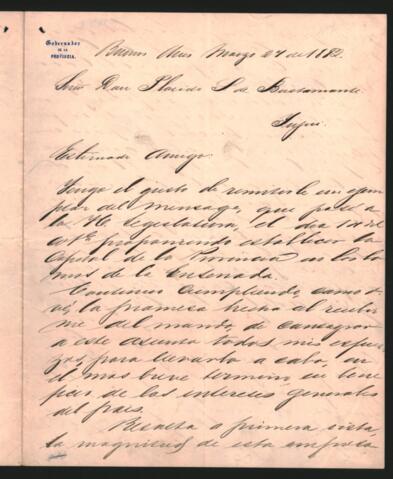 Gobernador
DE LA
PROVINCIA.
Buenos Aires Marzo 27 de 1882.
Señor Don Plácido S. de Bustamante
Jujui.
Estimado Amigo:
Tengo el gusto de remitirle un ejem
plar del Mensage, que pasé a
la H. Legislatura, el dia 14 del
cte. proponiendo establecer la
Capital de la Provincia en las Lo
mas de la Ensenada.
Continúo cumpliendo, como
vé, la promesa hecha al recibir
me del mando, de consagrar
a este asunto todos mis esfuer
zos, para llevarlo a cabo, en
el mas breve termino, en bene
de los intereses generales
del pais.
Resalta a primera vista,
la magnitud de esta empresa